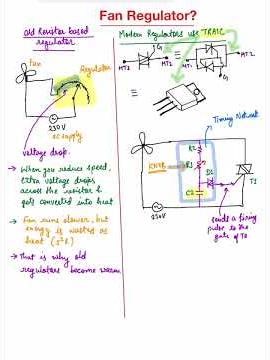 Fan Regulator?
Old Resistor based
regulator
Fan
Regulator
230V
AC supply
voltage drop.
→ When you reduce speed,
extra voltage drops
across the resistor &
gets converted into heat
→ Fan runs slower, but
energy is wasted as
heat (I²R)
→ That is why old
regulators become warm
Modern Regulators use TRAIC
MT1
MT2
G
MT1
MT2
G
Timing Network
KNOB
R2
R1
D1
C2
T1
230V
sends a firing
pulse to the
gate of T1